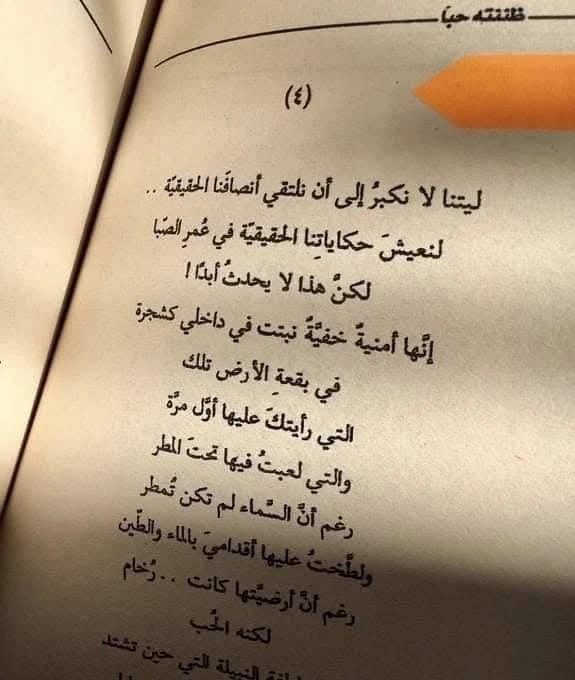 ظننته حبا
(٤)
ليتنا لا نكبرُ إلى أن نلتقي أنصافَنا الحقيقيّة ..
لنعيشَ حكاياتِنا الحقيقيّة في عُمرِ الصّبا
لكنَّ هذا لا يحدثُ أبدًا !
إنَّها أمنيةٌ خفيَّةٌ نبتت في داخلي كشجرة
في بقعةِ الأرض تلك
التي رأيتكَ عليها أوَّل مرَّة
والتي لعبتُ فيها تحتَ المطر
رغم أنَّ السَّماء لم تكن تُمطر
ولطَّختُ عليها أقداميَ بالماء والطّين
رغم أنَّ أرضيَّتها كانت .. رُخام
لكنه الحُب
النبيلة التي حين تشتد